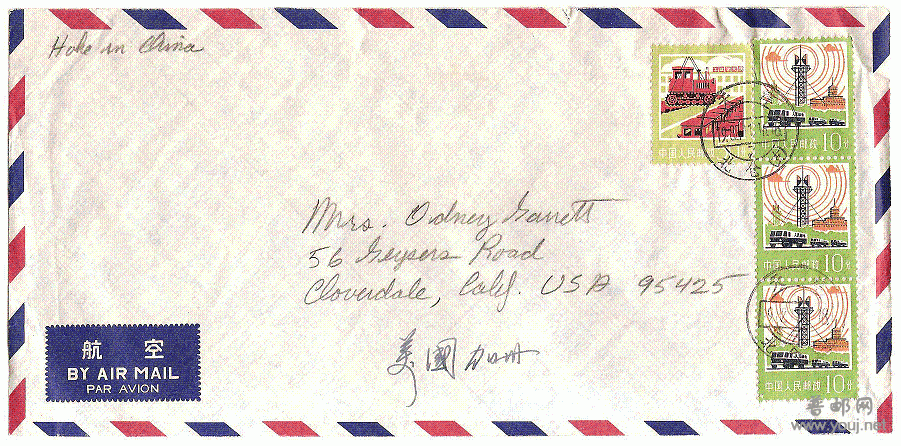 Hake in China
中国人民邮政
中国人民邮政 10分
中国人民邮政 10分
中国人民邮政 10分
Mrs. Odney Garrett
56 Geysers Road
Cloverdale, Calif. USA 95425
美國 加州
航 空
BY AIR MAIL
PAR AVION
普邮网
www.youj.net